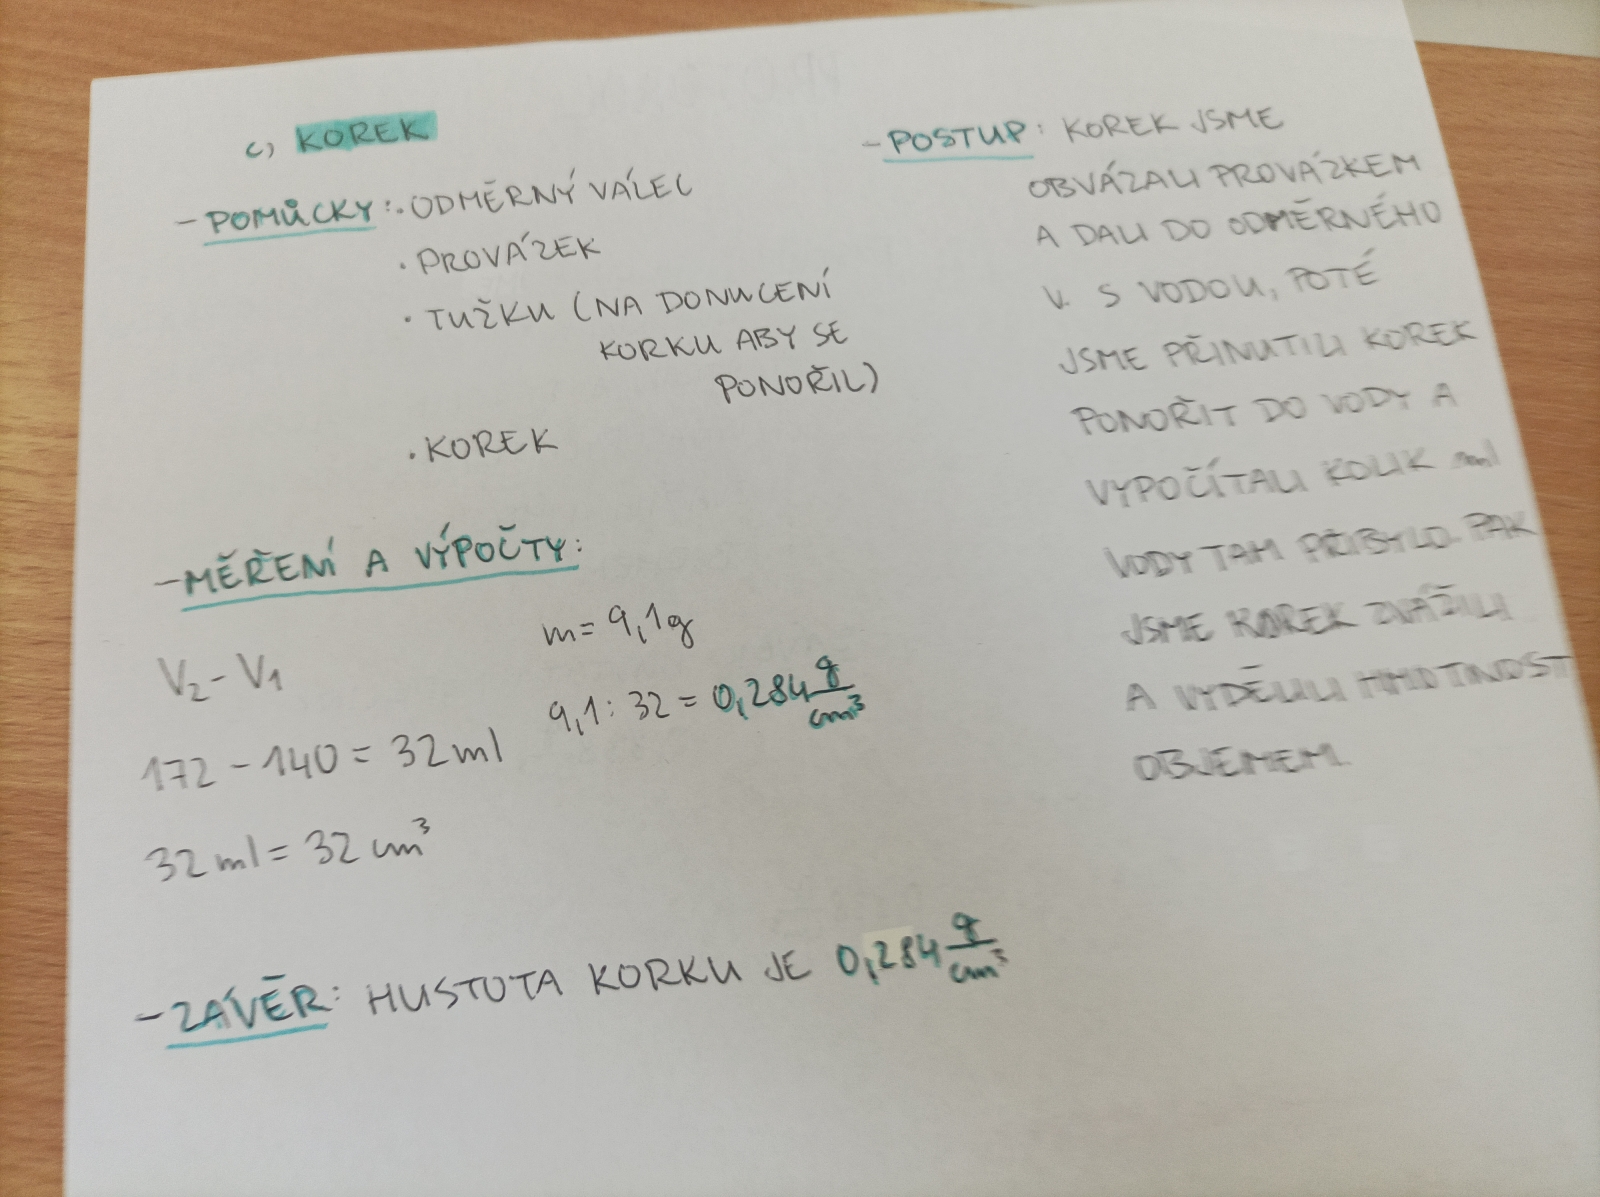 c) KOREK
- POMŮCKY: · ODMĚRNÝ VÁLEC
· PROVÁZEK
· TUŽKU (NA DONUCENÍ
KORKU ABY SE
PONOŘIL)
· KOREK
- MĚŘENÍ A VÝPOČTY:
V₂ - V₁
172 - 140 = 32 ml
32 ml = 32 cm³
m = 9,1g
9,1 : 32 = 0,284 g/cm³
- ZÁVĚR: HUSTOTA KORKU JE 0,284 g/cm³
- POSTUP: KOREK JSME
OBVÁZALI PROVÁZKEM
A DALI DO ODMĚRNÉHO
V. S VODOU, POTÉ
JSME PŘINUTILI KOREK
PONOŘIT DO VODY A
VYPOČÍTALI KOLIK ml
VODY TAM PŘIBYLO. PAK
JSME KOREK ZVÁŽILI
A VYDĚLILI HMOTNOST
OBJEMEM.